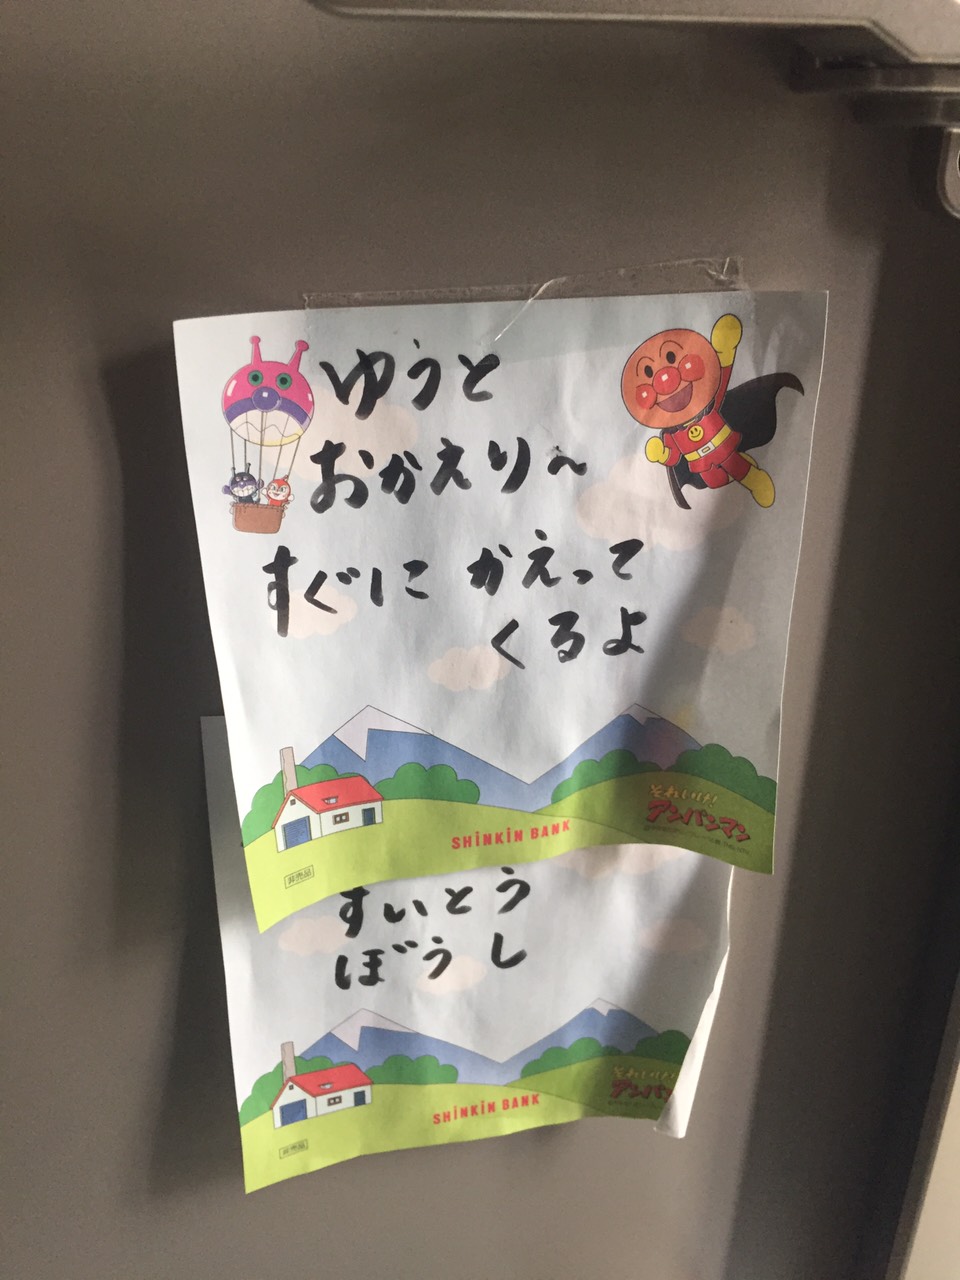 ゆうと
おかえり〜
すぐに かえって
くるよ
それいけ!
アンパンマン
SHiNKiN BANK
非売品
すいとう
ぼうし
それいけ!
アンパン
SHiNKiN BANK
非売品